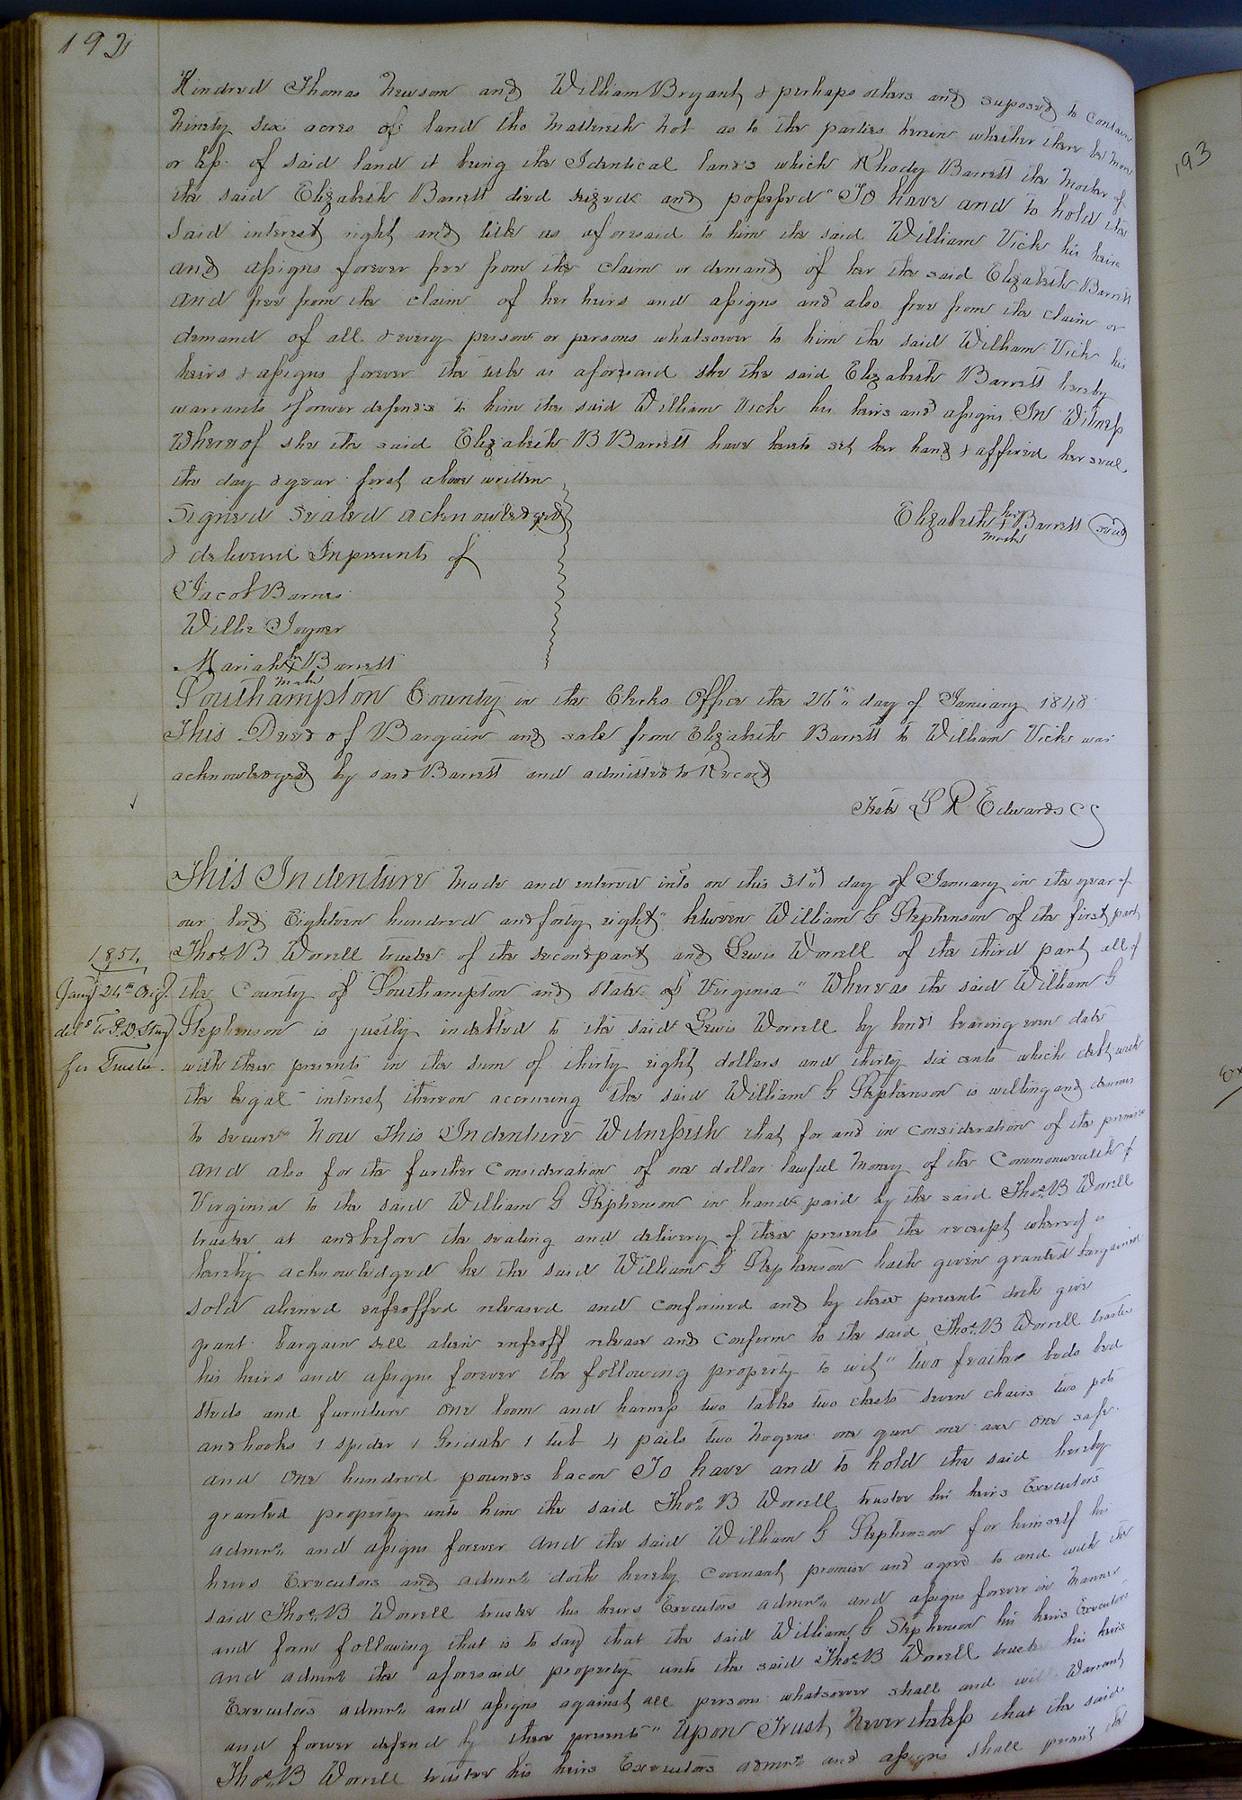 192
Kindred Thomas Newsom and William Bryant & perhaps others and suposed to contain
Ninety six acres of land tho Mattereth not as to the parties herein whether there be more
or less of said land it being the Identical lands which Rhody Barrett the Mother of
the said Elizabeth Barrett died seized and possessed" To have and to hold the
said interest right and title as aforesaid to him the said William Vick his heirs
and assigns forever free from the claim or demand of her the said Elizabeth Barrett
and free from the claim of her heirs and assigns and also free from the claim or
demand of all & every person or persons whatsoever to him the said William Vick his
heirs & assigns forever the title as aforesaid she the said Elizabeth Barrett hereby
warrants & forever defends to him the said William Vick his heirs and assigns In Witness
Whereof she the said Elizabeth B Barrett have hereto set her hand & affixed her seal
the day & year first above written
Signed Sealed acknowledged
& delivered In presents of
Elizabeth her + mark Barrett (seal)
Jacob Barnes
Willie Joyner
Mariah her + mark Barrett
Southampton County in the Clerks Office the 26" day of January 1848
This Deed of Bargain and sale from Elizabeth Barrett to William Vick was
acknowledged by said Barrett and admitted to Record
Teste L R Edwards CC
This Indenture Made and entered into on this 31st day of January in the year of
our lord Eighteen hundred and forty eight" between William G Stephenson of the first part
Thos. B Worrell trustee of the second part and Lewis Worrell of the third part all of
the County of Southampton and State of Virginia" Whereas the said William G
Stephenson is justly indebted to the said Lewis Worrell by bond bearing even date
with these presents in the sum of thirty eight dollars and thirty six cents which debt with
the legal interest thereon accruing the said William G Stephenson is willing and desirous
to secure" Now This Indenture Witnesseth that for and in consideration of the premises
and also for the further Consideration of one dollar lawful Money of the Commonwealth of
Virginia to the said William G Stephenson in hand paid by the said Thos. B Worrell
trustee at and before the sealing and delivery of these presents the receipt whereof is
hereby acknowledged he the said William G Stephenson hath given granted bargained
sold aliened enfeoffed released and confirmed and by these presents doth give
grant bargain sell alien enfeoff release and confirm to the said Thos. B Worrell trustee
his heirs and assigns forever the following property to wit" two feather beds bed
steds and furniture one loom and harness two tables two chests seven chairs two pots
and hooks 1 spider 1 1 tub 4 pails two one gun one axe one safe
and One hundred pounds bacon To have and to hold the said hereby
granted property unto him the said Thos. B Worrell trustee his heirs Executors
admrs. and assigns forever and the said William G Stephenson for himself his
heirs Executors and admrs. doth hereby Covenant promise and agree to and with the
said Thos. B Worrell trustee his heirs Executors admrs. and assigns forever in Manner
and form following that is to say that the said William G Stephenson his heirs Executors
and admrs. the aforesaid property unto the said Thos. B Worrell trustee his heirs
Executors admrs. and assigns against all persons whatsoever shall and will Warrant
and forever defend by these presents" Upon Trust Nevertheless that the said
Thos. B Worrell trustee his heirs Executors admrs. and assigns shall permit the
Jany 24th Orig.
for Trustee.
193